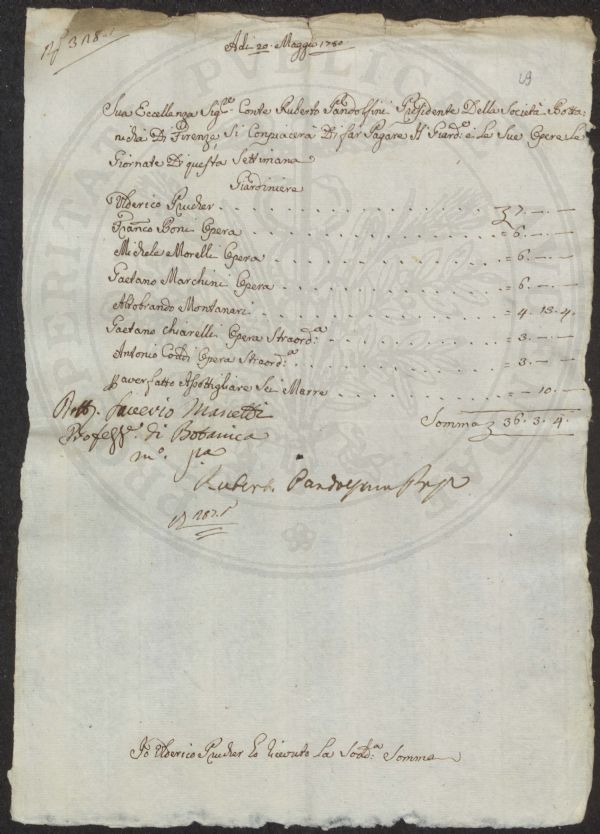 Adi 20. Maggio 1780
19
Sua Eccellenza Sig.re Conte Ruberto Pandolfini Presidente Della Società Botta:
nicha Di Firenze Si Conpiacerà Di far Pagare Il Giard.e e le Sue Opere Le
Giornate Di questa Settimana
Giardiniere
Ulderico Prucher . . . 7. — . —
Franco Boni Opera . . . = 6. — . —
Michele Morelli Opera . . . = 6. — . —
Gaetano Marchini Opera . . . = 6. — . —
Aldobrando Montanari . . . = 4. 13. 4.
Gaetano Chiarelli Opera Straord.a . . . = 3. — . —
Antonio Opera Straord.a . . . = 3. — . —
P aver fatto Sei Marre . . . = — 10. —
Somma 36. 3. 4.
Dott. Saverio Manetti
Profess.e di Botanica
m.o p.a
Rubert. Pandolfini Pres.
Io Ulderico Prucher ho ricevuto La Sod.a Somma
PROSPERITATI PUBLICAE AUGENDAE